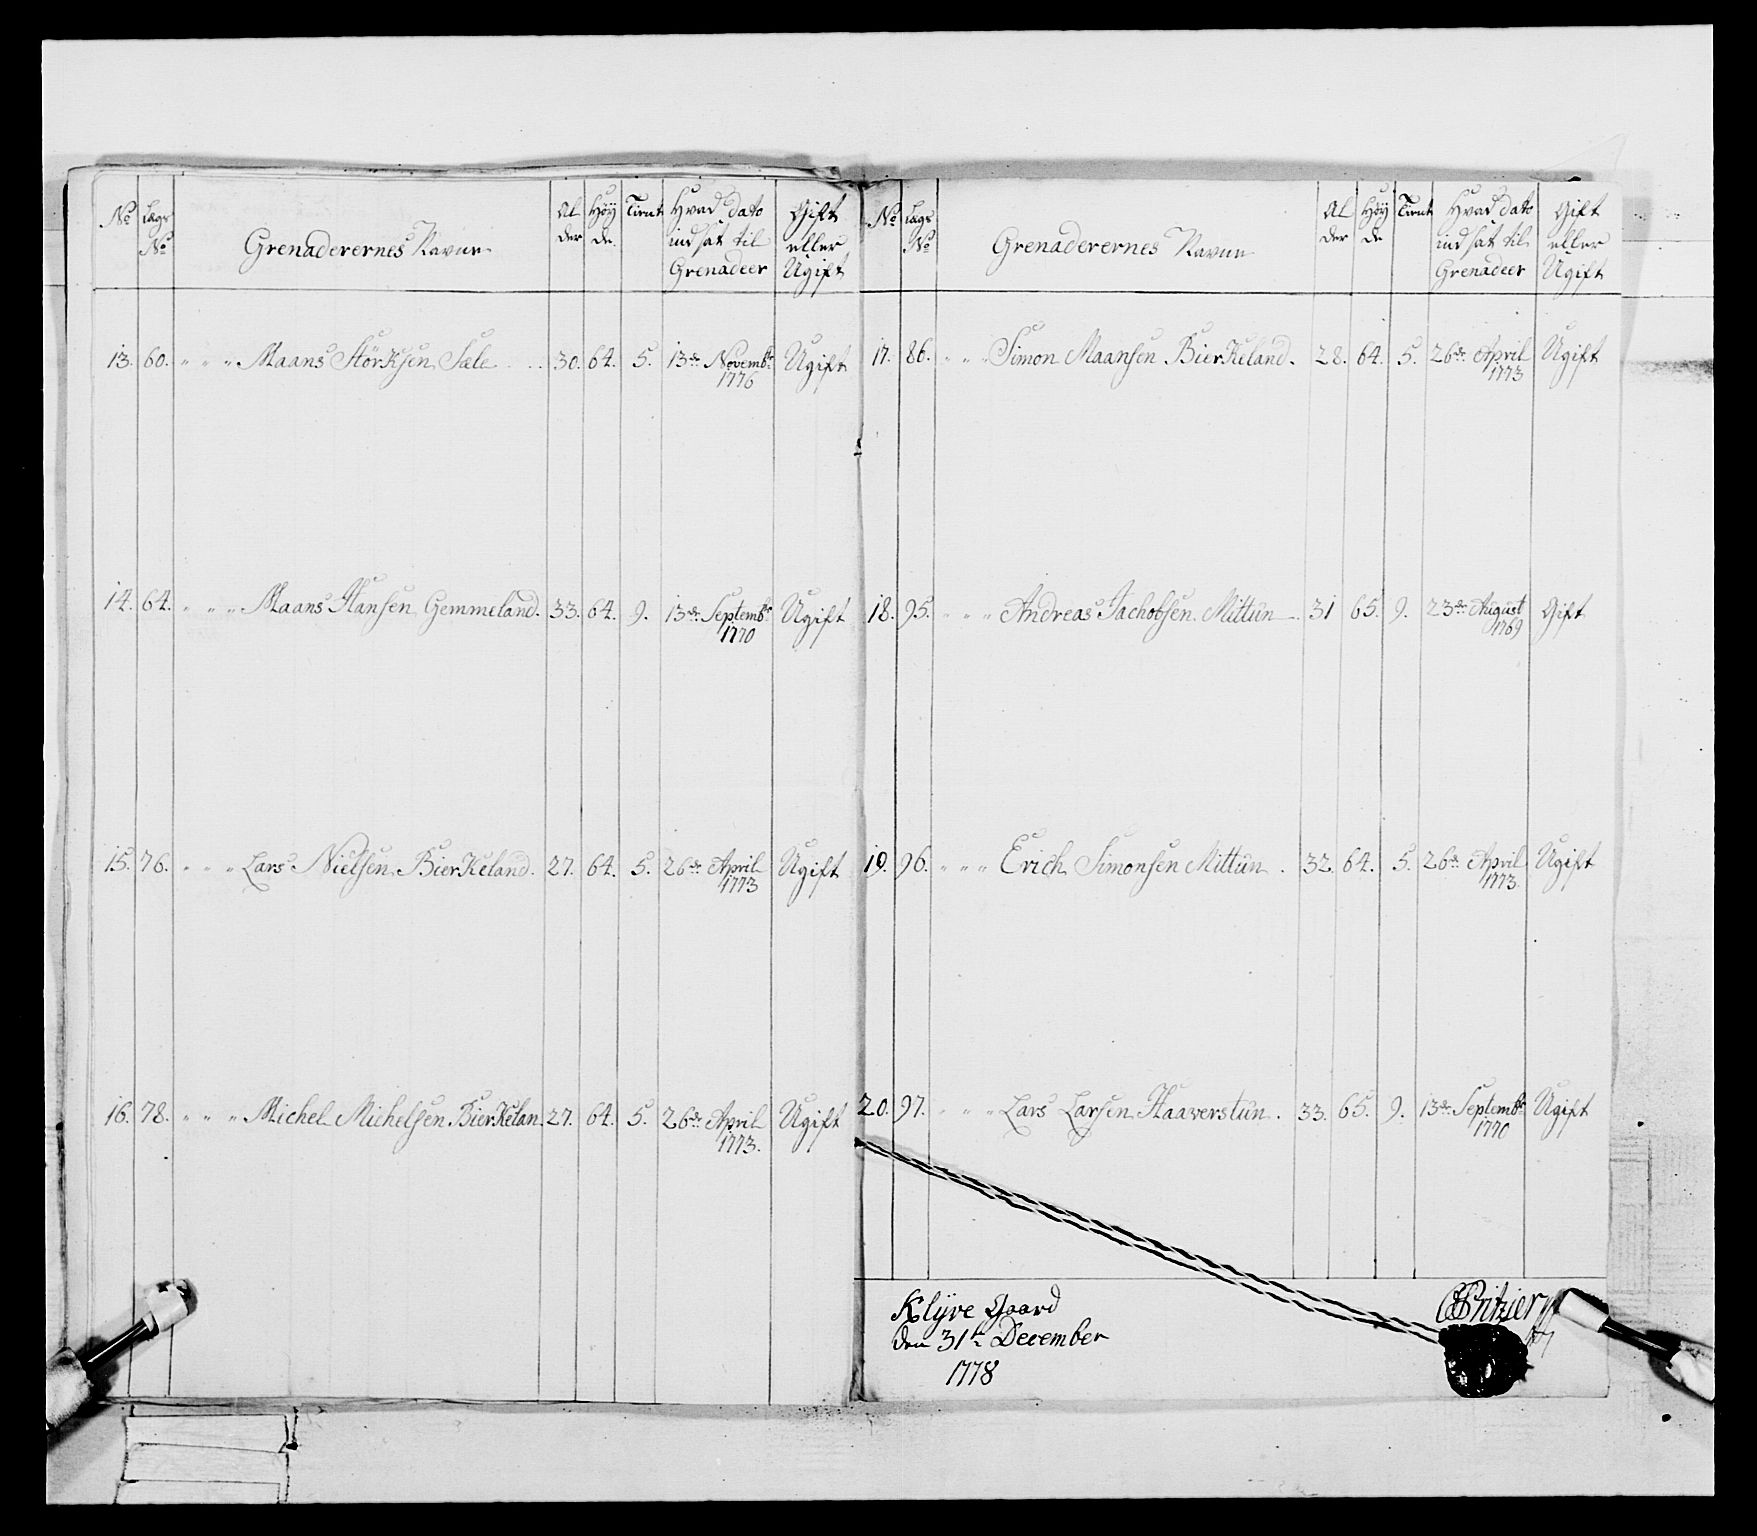 No Lægs No Grenaderernes Navne Alder Høyde Tient Hvad dato indsat til Grenadeer Gift eller Ugift
13. 60. " " " Maans Störksen Sæle . . 30. 64. 5. 13de Novembr 1776 Ugift
14. 64. " " " Maans Hansen Gemmeland. 33. 64. 9. 13de Septembr 1770 Ugift
15. 76. " " " Lars Nielsen BierKeland. 27. 64. 5. 26de April 1773 Ugift
16. 78. " " " Michel Michelsen BierKelan. 27. 64. 5. 26de April 1773. Ugift
No Lægs No Grenaderernes Navne Alder Høyde Tient Hvad dato indsat til Grenadeer Gift eller Ugift
17. 86. " " " Simon Maansen BierKeland. 28. 64. 5. 26de April 1773 Ugift
18. 95. " " " Andreas Jachobsen Mittun 31 65. 9. 23de August 1769 Gift
19. 96. " " " Erich Simonsen Mittun . 32. 64. 5. 26de April 1773. Ugift
20. 97. " " " Lars Larsen Haaverstun. 33. 65. 9. 13de Septembr 1770 Ugift
Klÿve Gaard
den 31te December
1778